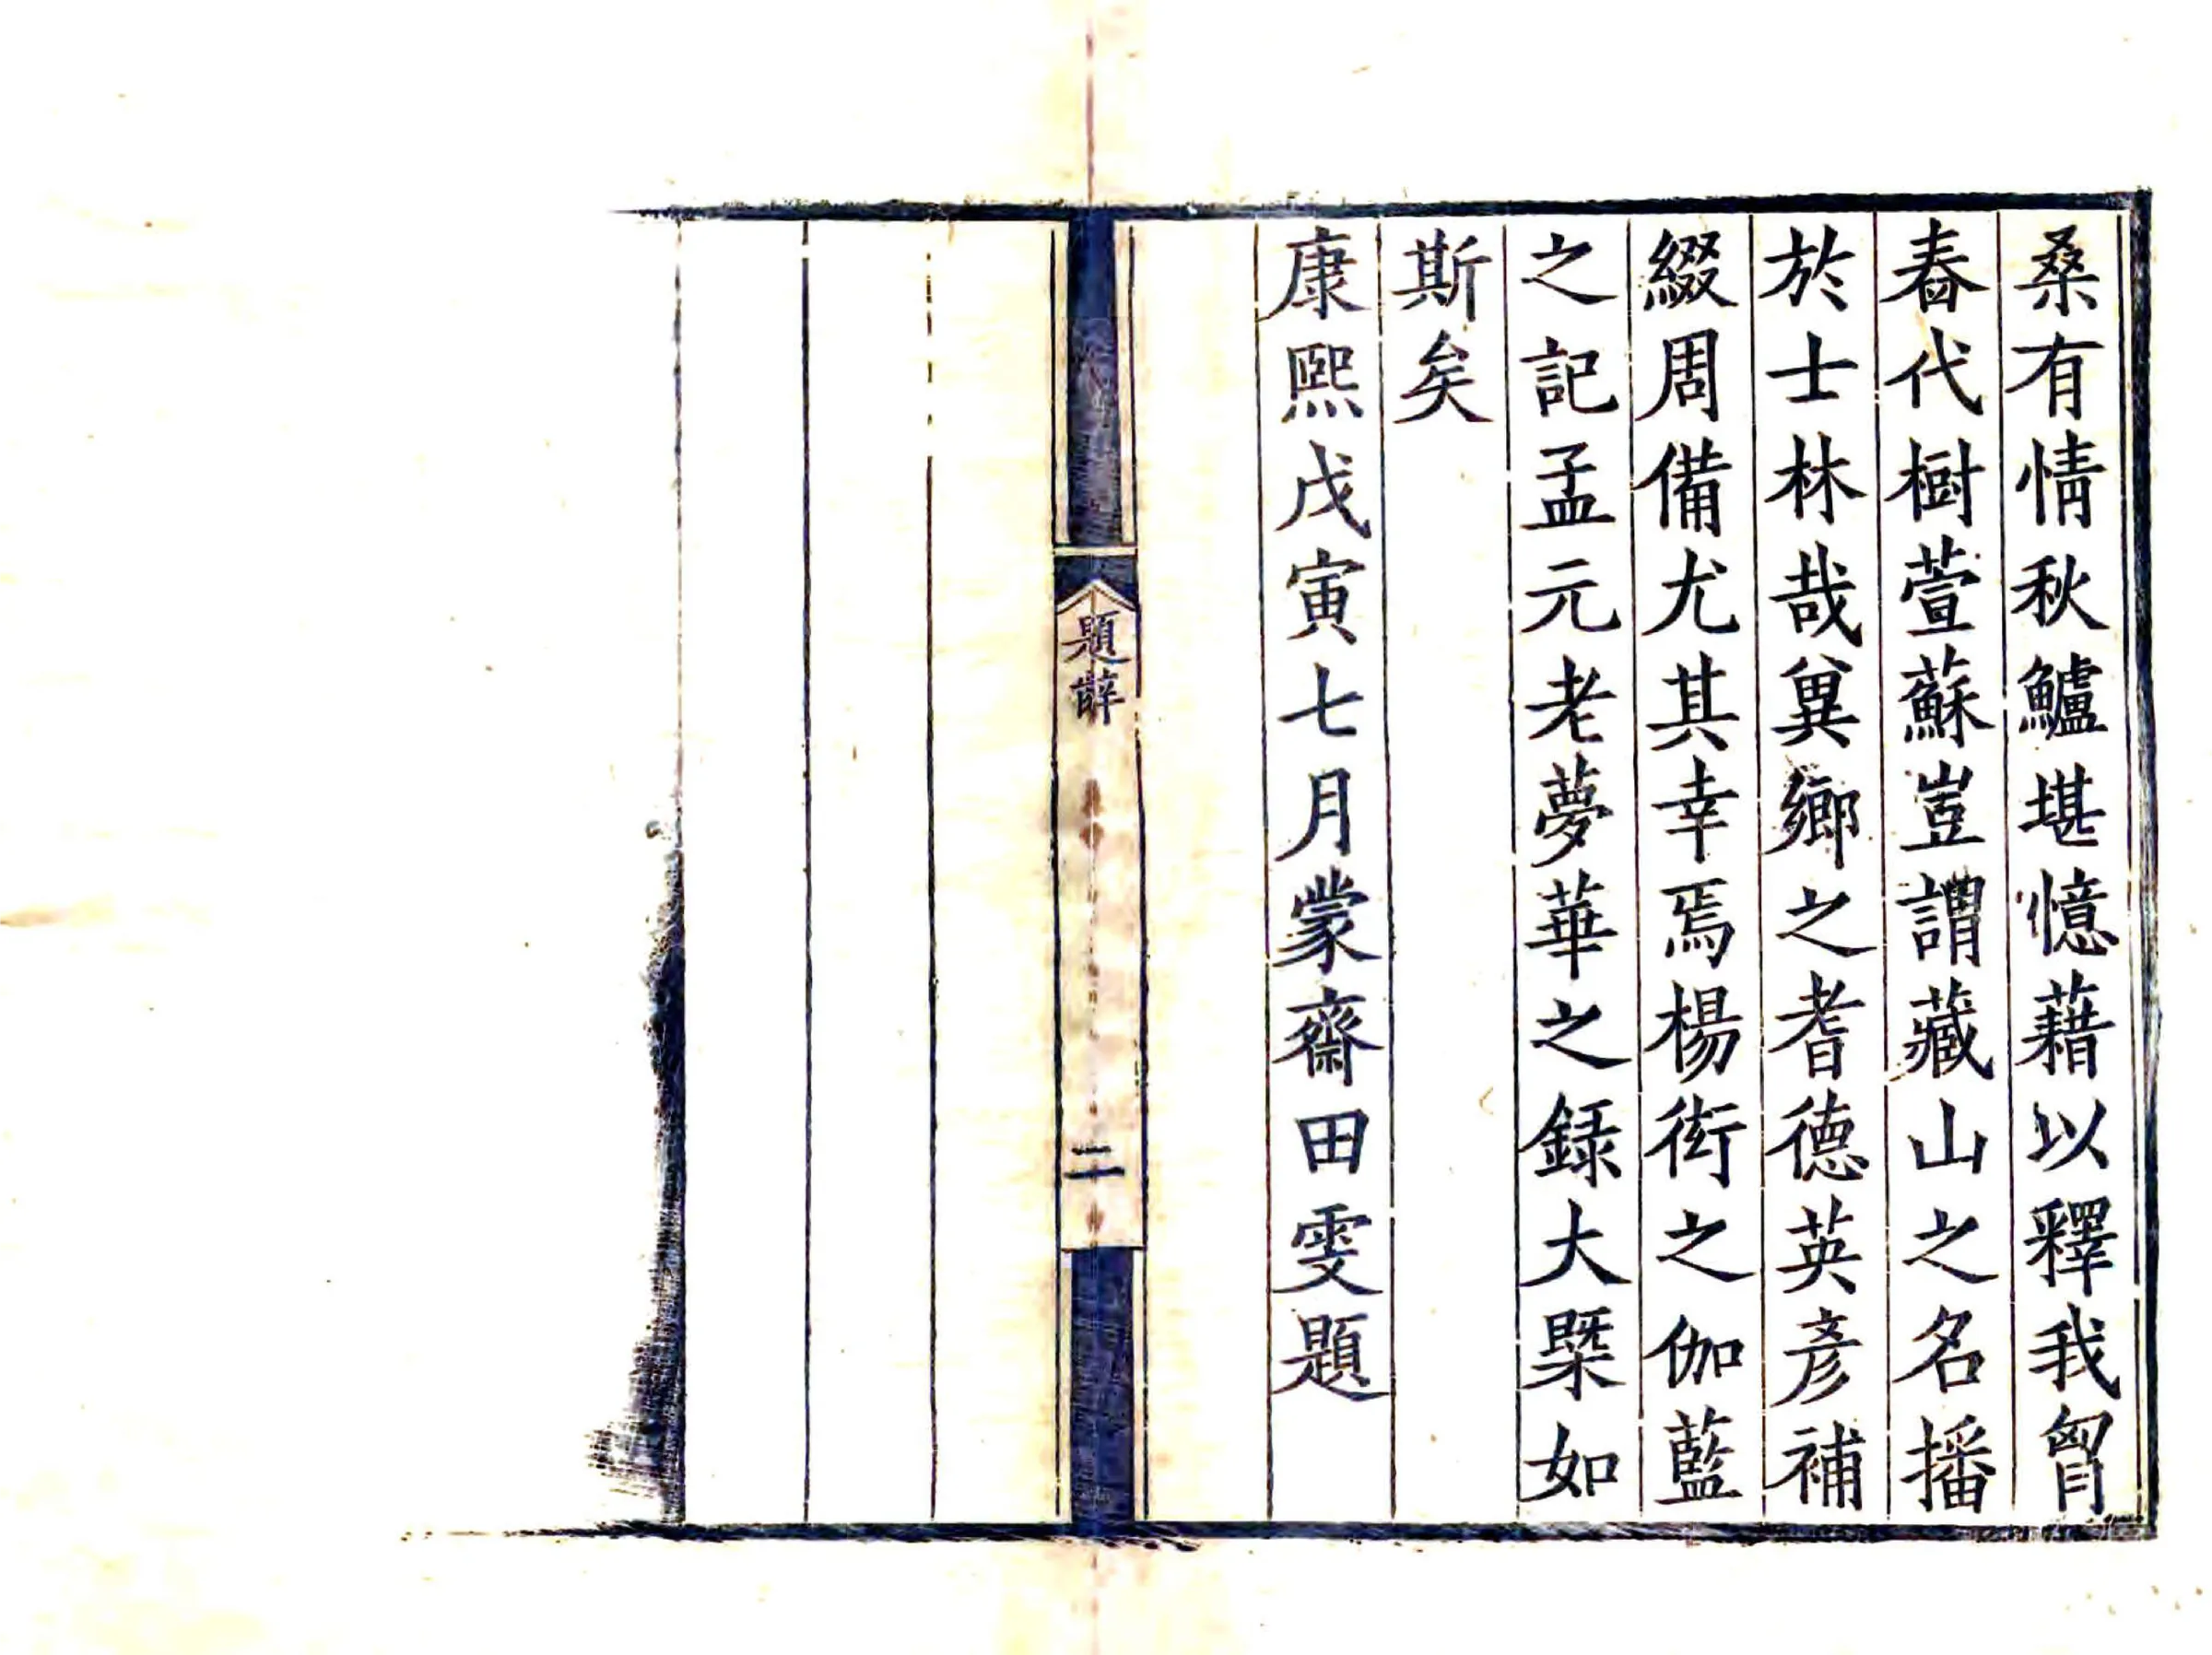 桑有情秋鱸堪憶藉以釋我胷
春代樹萱蘇豈謂藏山之名播
於士林哉兾鄉之耆德英彥補
綴周備尤其幸焉楊衒之伽藍
之記孟元老夢華之録大槩如
斯矣
康熙戊寅七月蒙齋田雯題
題辭
二